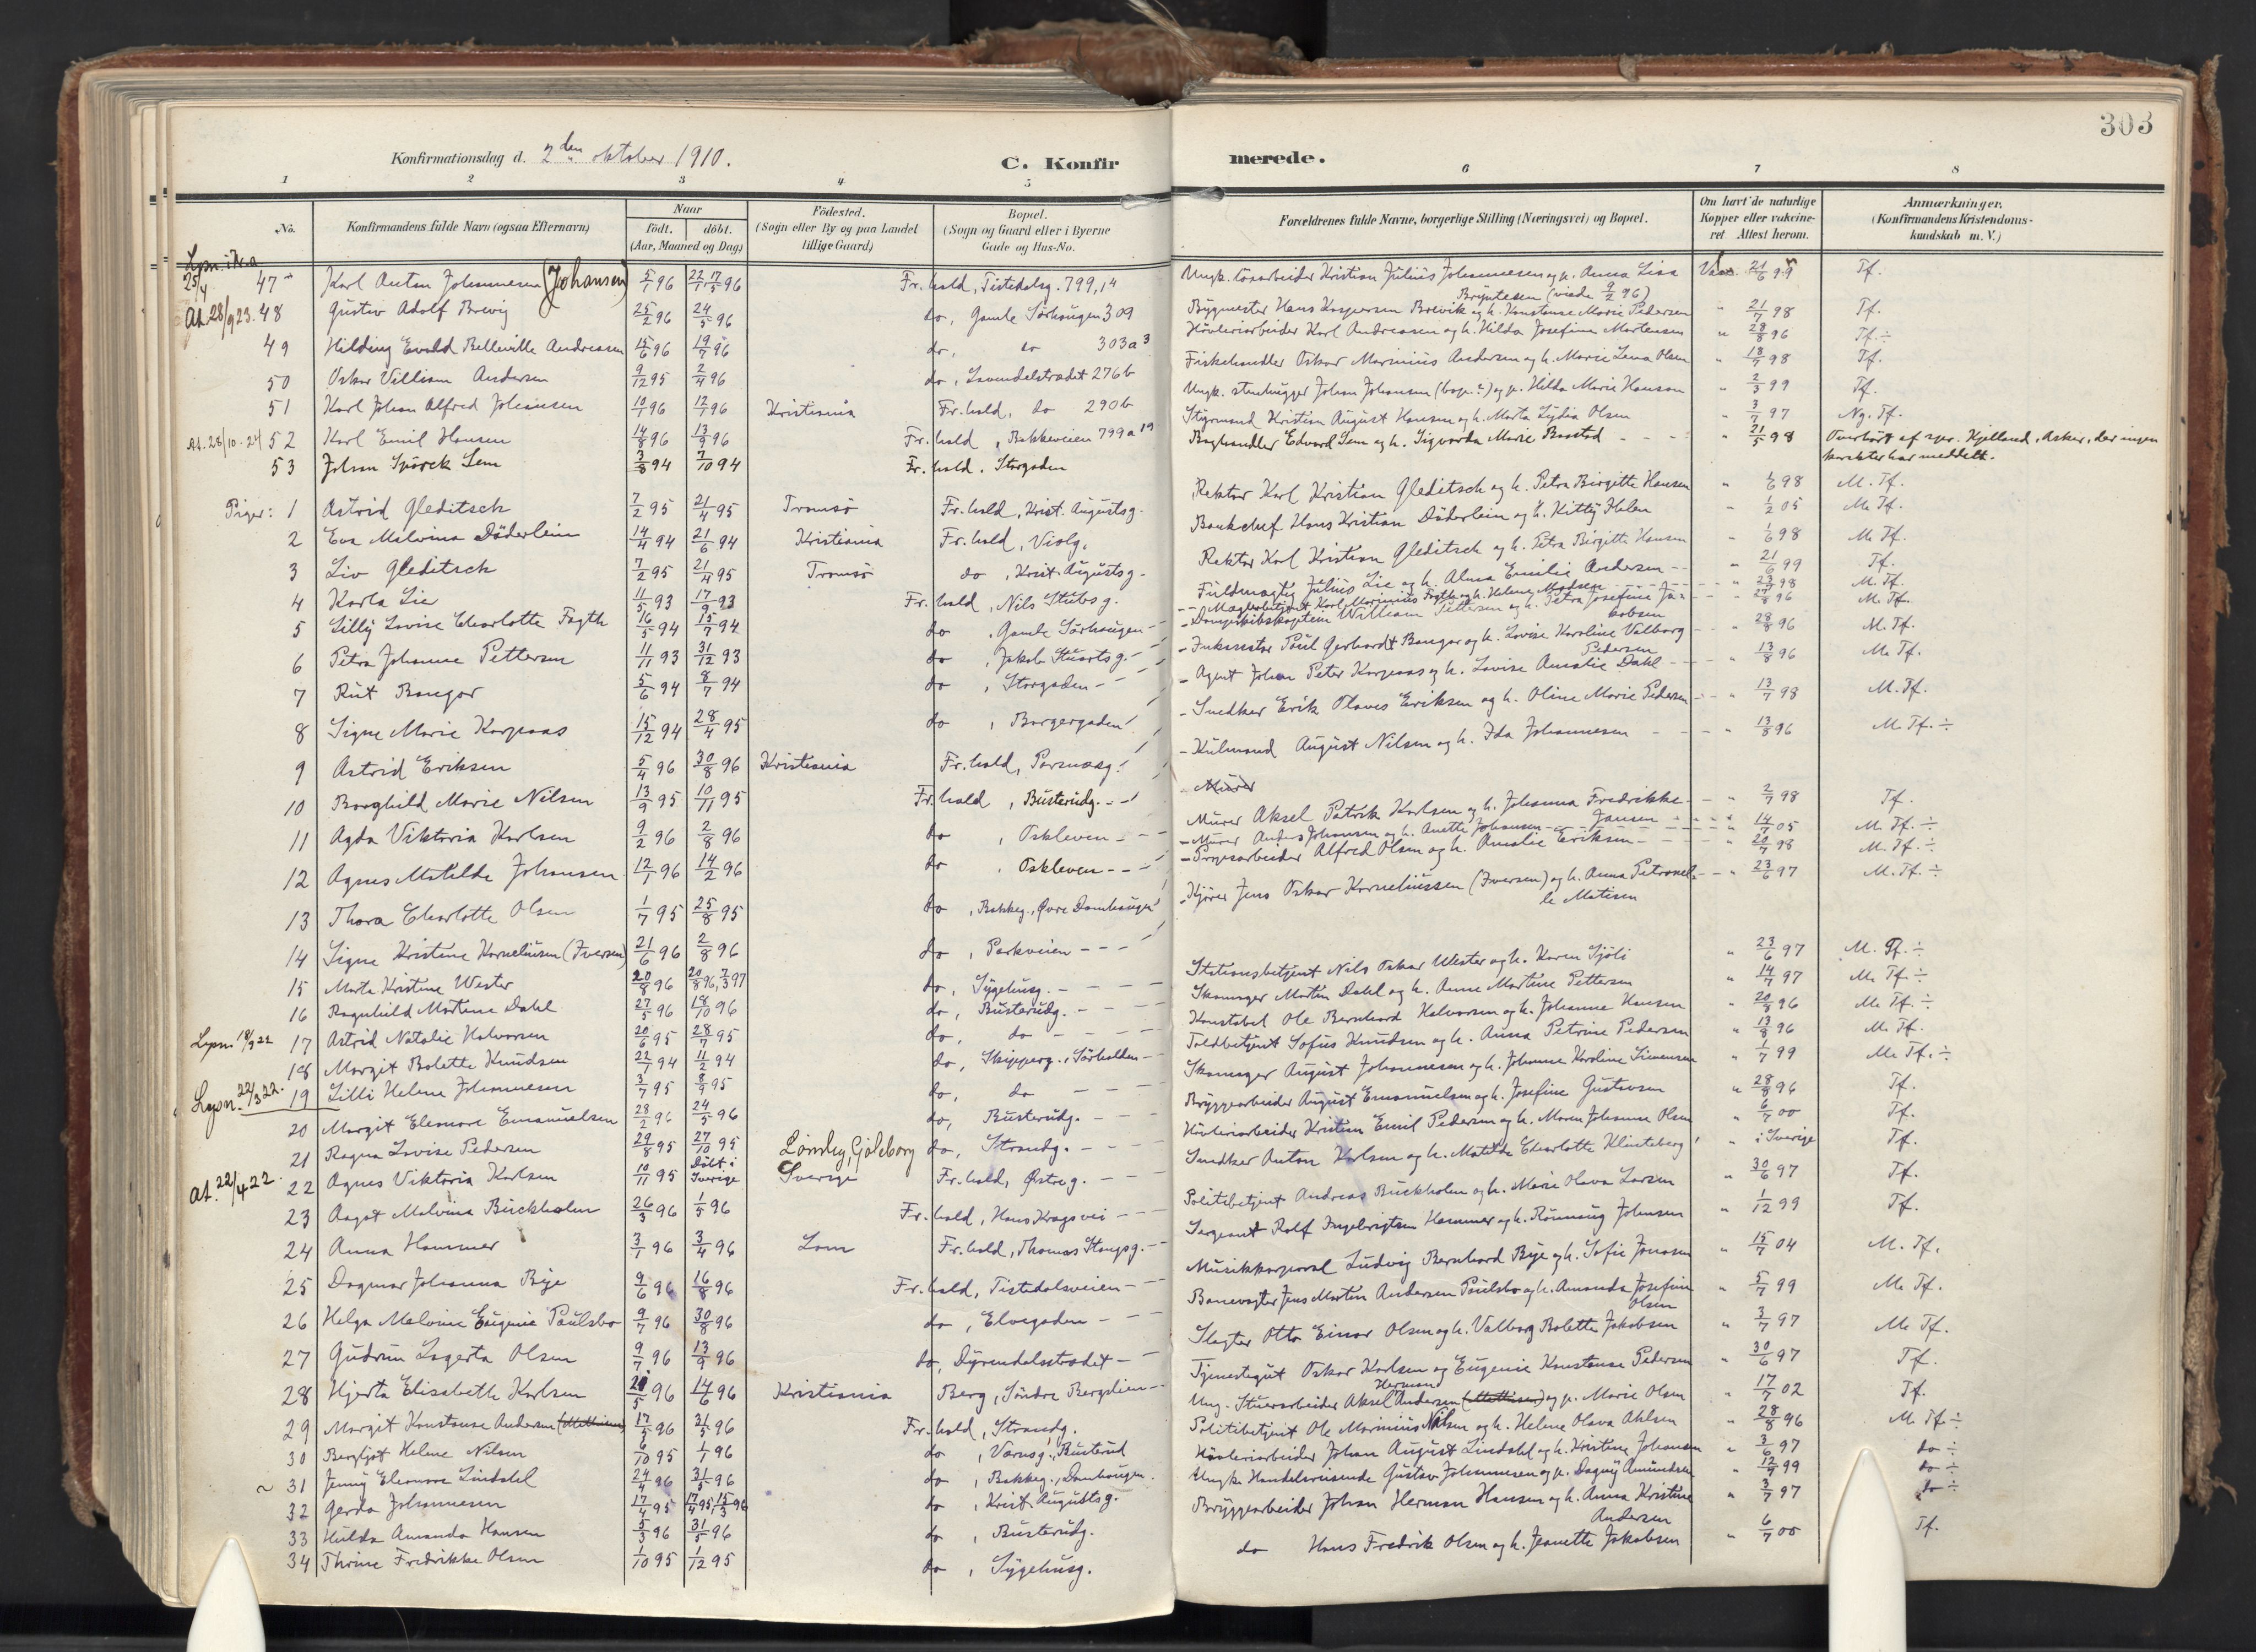 303
Konfirmationsdag d. 2den oktober 1910.
C. Konfirmerede.
1 2 3 4 5 6 7 8
No.
Konfirmandens fulde Navn (ogsaa Efternavn)
Naar
födt. döbt.
(Aar, Maaned og Dag)
Födested.
(Sogn eller By og paa Landet
tillige Gaard)
Bopæl.
(Sogn og Gaard eller i Byerne
Gade og Hus-No.
Forældrenes fulde Navne, borgerlige Stilling (Næringsvei) og Bopæl.
Om havt de naturlige
Kopper eller vakcine-
ret Attest herom.
Anmærkninger.
(Konfirmandens Kristendoms-
kundskab m. V.)
47 Karl Anton Johannesen (Johansen) 5/1 96 Fr.hald, Tistedalsg. 799,14 Ungk. Kristian Julius Johannesen og p. Anna Lisa Bryntesen (viede 9/2 96) 21/6 99 Tf.
At. 28/9 23. 48 Gustav Adolf Brevig 25/2 96 24/5 96 do, Gamle Sørhaugen 309 Bygmester Hans Kaspersen Brevik og h. Konstanse Marie Pedersen " 21/7 98 Tf.
49 Hilding Evald Belleville Andreassen 15/6 96 19/7 96 do, do 303a3 Høvleriarbeider Karl Andreassen og h. Hilda Josefine Martensen " 28/8 96 Tf. ÷
50 Oskar Villiam Andersen 9/12 95 2/4 96 do, Lavendelstrædet 276b Fiskehandler Oskar Marinius Andersen og h. Marie Lena Olsen " 18/7 98 Tf.
51 Karl Johan Alfred Johansen 10/1 96 12/7 96 Kristiania Fr.hald, do 290b Ungk. stenhugger Johan Johansen (bop.?) og p. Hilda Marie Hansen " 2/3 99 Tf.
At. 28/10. 24 52 Karl Emil Hansen 14/8 96 13/9 96 Fr.hald, Bakkeveien 799a19 Styrmand Kristian August Hansen og h. Marta Lydia Olsen " 3/7 97 Ng. Tf.
53 Johan Spörck Lem 3/8 94 7/10 94 Fr.hald. Storgaden Boghandler Edvard Lem og h. Sigvarda Marie Baastad " 21/5 98 Overhørt af spr. Kjelland, Asker, der ingen karakter har meddelt.
Piger: 1 Astrid Gleditsch 7/2 95 21/4 95 Tromsø Fr.hald, Krist. Augustsg. Rektor Karl Kristian Gleditsch og h. Petra Birgitte Hansen " 1/6 98 M. Tf.
2 Eva Malvina Döderlein 14/4 94 21/6 94 Kristiania Fr.hald, Violg. Bankchef Hans Kristian Döderlein og h. Kitty Holen " 1/2 05 M. Tf.
3 Liv Gleditsch 7/2 95 21/4 95 Tromsø do, Krist. Augustsg. Rektor Karl Kristian Gleditsch og h. Petra Birgitte Hansen " 1/6 98 M. Tf.
4 Karla Lie 11/5 93 17/9 93 Fr.hald, Nils Stubsg. Fuldmægtig Julius Lie og h. Alma Emilie Andersen " 21/6 99 Tf.
5 Lilly Lovise Charlotte Fagth 16/5 94 15/7 94 do, Gamle Sørhaugen Karl Marinius Fagth og h. Helene Madsen " 23/7 98 M. Tf.
6 Petra Johanne Pettersen 11/11 93 31/12 93 do, Jakob Stuartsg. Dampskibskaptein William Pettersen og h. Petra Josefine Jakobsen " 27/8 96 M. Tf.
7 Rut Bangor 5/6 94 8/7 94 do, Storgaden Inkassator Paul Gerhardt Bangor og h. Lovise Karoline Valborg Pedersen " 28/8 96 M. Tf.
8 Signe Marie Korpaas 15/12 94 28/4 95 do, Borgergaden Agent Johan Peter Korpaas og h. Lovise Amalie Dahl " 13/8 96 M. Tf.
9 Astrid Eriksen 5/4 96 30/8 96 Kristiania Fr.hald, Porsnæsg. Snedker Erik Olaves Eriksen og h. Oline Marie Pedersen " 13/7 98 M. Tf.
10 Borghild Marie Nilsen 13/9 95 10/11 95 Fr.hald, Busterudg. Kulmand August Nilsen og h. Ida Johannesen " 13/8 96 M. Tf. ÷
Murer
11 Agda Viktoria Karlsen 9/2 96 2/8 96 do, Oskleven Murer Aksel Patrik Karlsen og h. Johanna Fredrikke Jansen " 2/7 98 Tf.
12 Agnes Matilde Johansen 12/1 96 14/2 96 do, Oskleven Murer Anders Johansen og h. Anette Johansen " 14/7 05 M. Tf. ÷
13 Thora Charlotte Olsen 1/7 95 25/8 95 do, Bakkeg., Øvre Damhaugen Alfred Olsen og h. Amalie Eriksen " 20/7 98 M. Tf. ÷
14 Signe Kristine Korneliusen (Iversen) 21/6 96 2/8 96 do, Parkveien Kjører Jens Oskar Korneliussen (Iversen) og h. Anna Petronelle Matisen " 23/6 97 M. Tf. ÷
15 Marta Kristine Wester 20/8 96 20/8 96, 7/3 97 do, Sygehusg. Stationsbetjent Nils Oskar Wester og h. Karen Sjöli " 23/6 97 M. Tf. ÷
16 Ragnhild Martine Dahl 27/5 96 18/10 96 do, Busterudg. Skomager Martin Dahl og h. Anne Martine Pettersen " 14/7 97 M. Tf. ÷
Lysn. 18/9 22 17 Astrid Natalie Halvorsen 20/6 95 28/7 95 do, do Konstabel Ole Bernhard Halvorsen og h. Johanne Hansen " 20/8 96 M. Tf. ÷
18 Margit Bolette Knudsen 22/1 94 11/2 94 do, Skipperg., Sørhalden Toldbetjent Sofus Knudsen og h. Anna Petrine Pedersen " 13/8 96 M. Tf.
Lysn. 22/3 22. 19 Lilli Helene Johannesen 3/7 95 8/9 95 do, do Skomager August Johannesen og h. Johanne Karoline Simensen " 1/7 99 M. Tf. ÷
20 Margit Elenore Emanuelsen 28/2 96 24/5 96 do, Busterudg. Bryggearbeider August Emanuelsen og h. Josefine Gustavsen " 28/8 96 Tf.
21 Ragna Lovise Pedersen 29/8 95 27/10 95 do, Strandg. Høvleriarbeider Kristian Emil Pedersen og h. Maren Johanne Olsen " 6/7 00 Tf.
At. 22/4 22. 22 Agnes Viktoria Karlsen 10/11 95 Döbt i Sverige Göteborg Sverige Fr.hald, Østreg. Snedker Anton Karlsen og h. Matilde Charlotte Klinteberg " i Sverige Tf.
23 Aagot Malvina Buckholm 26/3 96 1/5 96 Fr.hald, Hans Kragsvei Politibetjent Andreas Buckholm og h. Marie Olava Larsen " 30/6 97 Tf.
24 Anna Hammer 3/1 96 3/4 96 Lom Fr.hald, Thomas Stangsg. Sergeant Rolf Ingebrigtsen Hammer og h. Rönnaug Johnsen " 1/12 99 Tf.
25 Dagmar Johanna Bye 9/6 96 16/8 96 Fr.hald, Tistedalsveien Musikkorporal Ludvig Bernhard Bye og h. Sofie Jonasen " 15/7 04 M. Tf.
26 Helga Malvine Eugenie Paulsbo 9/7 96 30/8 96 do, Elvegaden Banevogter Jens Martin Andersen Paulsbo og h. Amanda Josefine Olsen " 5/7 99 M. Tf.
27 Gudrun Lagerta Olsen 9/7 96 13/9 96 do, Dyrendalsstrædet Slagter Otto Einar Olsen og h. Valborg Bolette Jakobsen " 3/7 97 M. Tf.
28 Hjerta Elisabeth Karlsen 20/5 96 14/6 96 Kristiania Berg, Søndre Bergslien Tjenestegut Oskar Karlsen og Eugenie Konstanse Pedersen " 30/6 97 Tf.
29 Margit Konstanse Andersen 17/5 96 31/5 96 Fr.hald, Strandg. Ung. Stuerarbeider Aksel Herman Andersen og p. Marie Olsen " 17/7 02 Tf.
30 Bergljot Helene Nilsen 6/10 95 1/1 96 do, Værnsg., Busterud Politibetjent Ole Marinius Nilsen og h. Helene Olava Ahlsen " 28/8 96 M. Tf. ÷
31 Jenny Eleonore Lindahl 24/4 96 31/5 96 do, Bakkeg., Damhaugen. Høvleriarbeider Johan August Lindahl og h. Kristine Johansen " 3/6 97 do ÷
32 Gerda Johannesen 17/4 95 17/4 95, 15/3 96 do, Krist. Augustsg. Ungk. Handelsreisende Gustav Johannesen og p. Dagny Amundsen " 12/7 99 do ÷
33 Hulda Amanda Hansen 5/3 96 31/5 96 do, Busterudg. Bryggearbeider Johan Herman Hansen og h. Anna Kristine Andersen " 3/7 97 do ÷
34 Thrine Fredrikke Olsen 1/10 95 1/12 95 do, Sygehusg. do Hans Fredrik Olsen og h. Jeanette Jakobsen " 6/7 00 Tf.